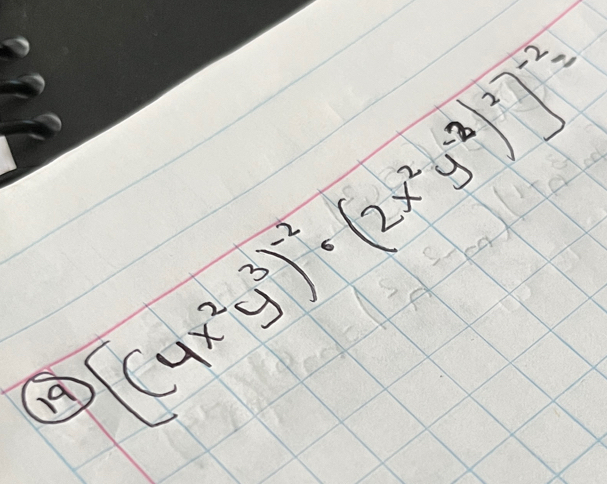 19 [(4x²y³)⁻² · (2x²y⁻²)²]⁻² =